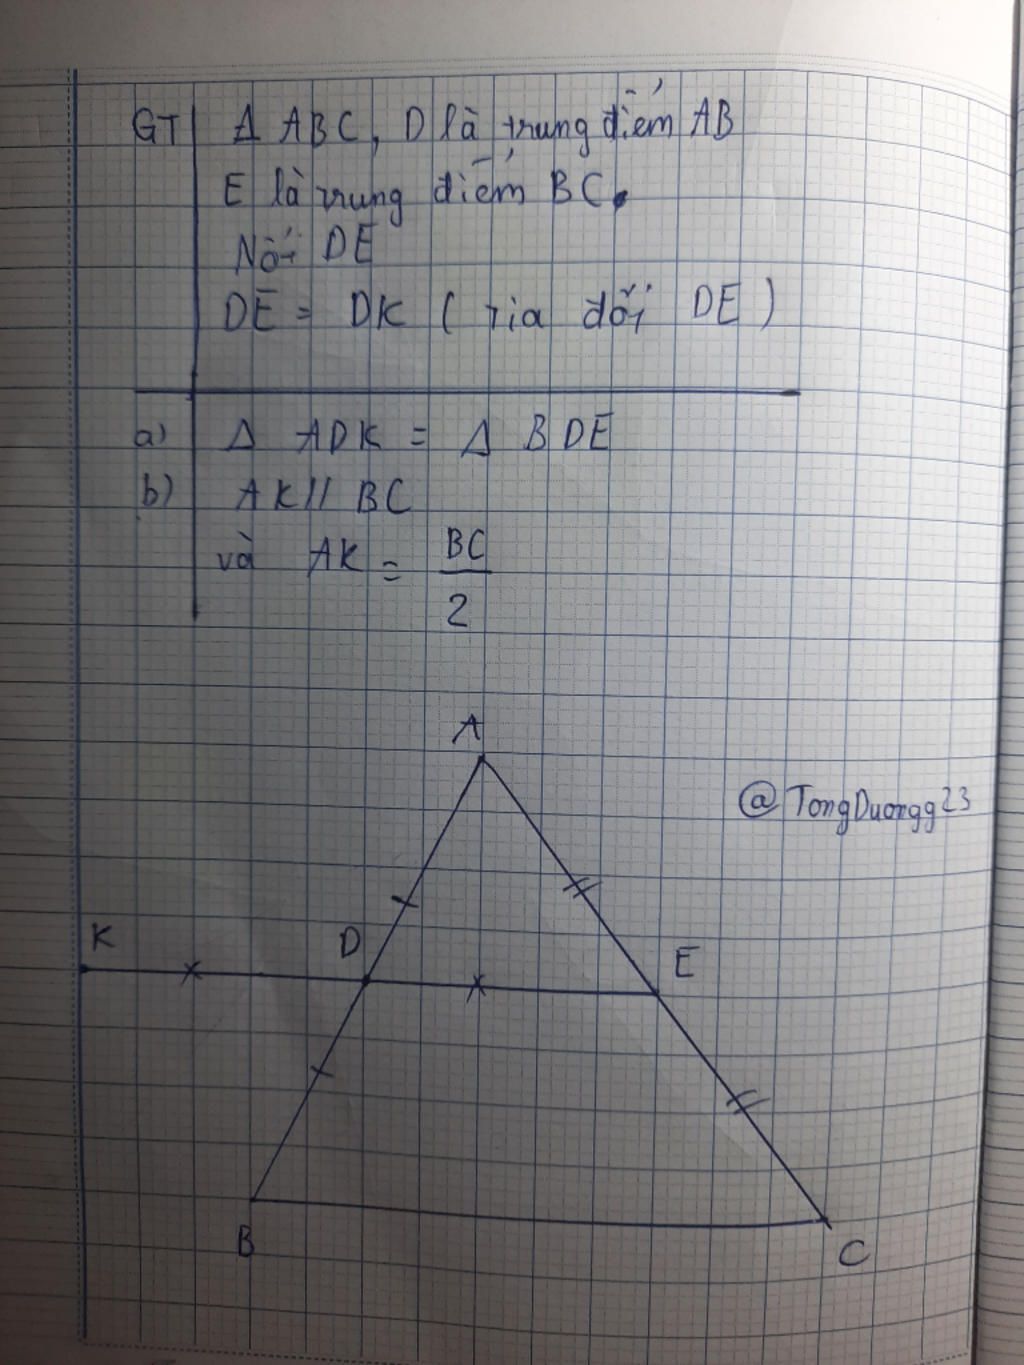 GT Δ ABC, D là trung điểm AB
E là trung điểm BC.
Nối DE
DE = DK ( tia đối DE )
a) Δ ADK = Δ BDE
b) AK // BC
và AK = BC/2
A
@TongDuongg23
K D E
B C